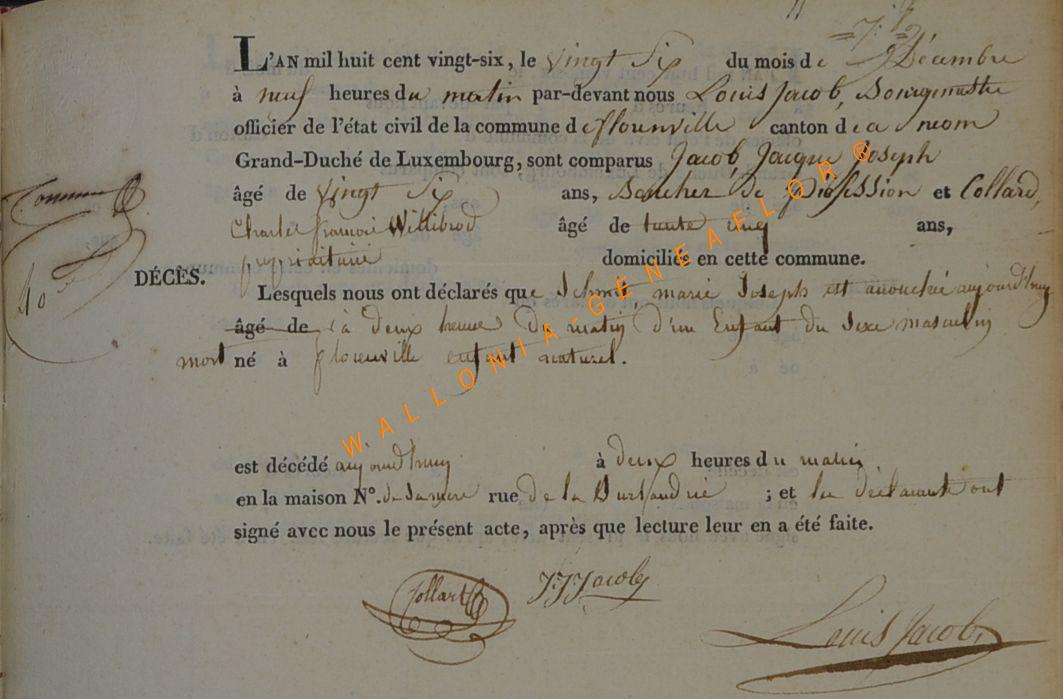 L'AN mil huit cent vingt-six, le vingt Six du mois de Décembre
à neuf heures du matin par-devant nous Louis Jacob, Bourgmestre
officier de l'état civil de la commune de florenville canton de ce nom
Grand-Duché de Luxembourg, sont comparus Jacob, Jacque Joseph
âgé de Vingt Six ans, Boucher De profession et Collard,
Charles françois Willibrod âgé de trente cinq ans,
propriétaire domiciliés en cette commune.
DÉCÈS.
Lesquels nous ont déclarés que Schmit, marie Joseph est accouchée aujourd'huy
âgé de à deux heures du matin d'un Enfant du Sexe masculin
mort né à florenville enfant naturel.
est décédé aujourd'huy à deux heures du matin
en la maison N°. de sa mere rue De la ; et les déclarants ont
signé avec nous le présent acte, après que lecture leur en a été faite.
Collart
J:J:Jacob
Louis Jacob
WALLONIA-GENEAFLOR ®